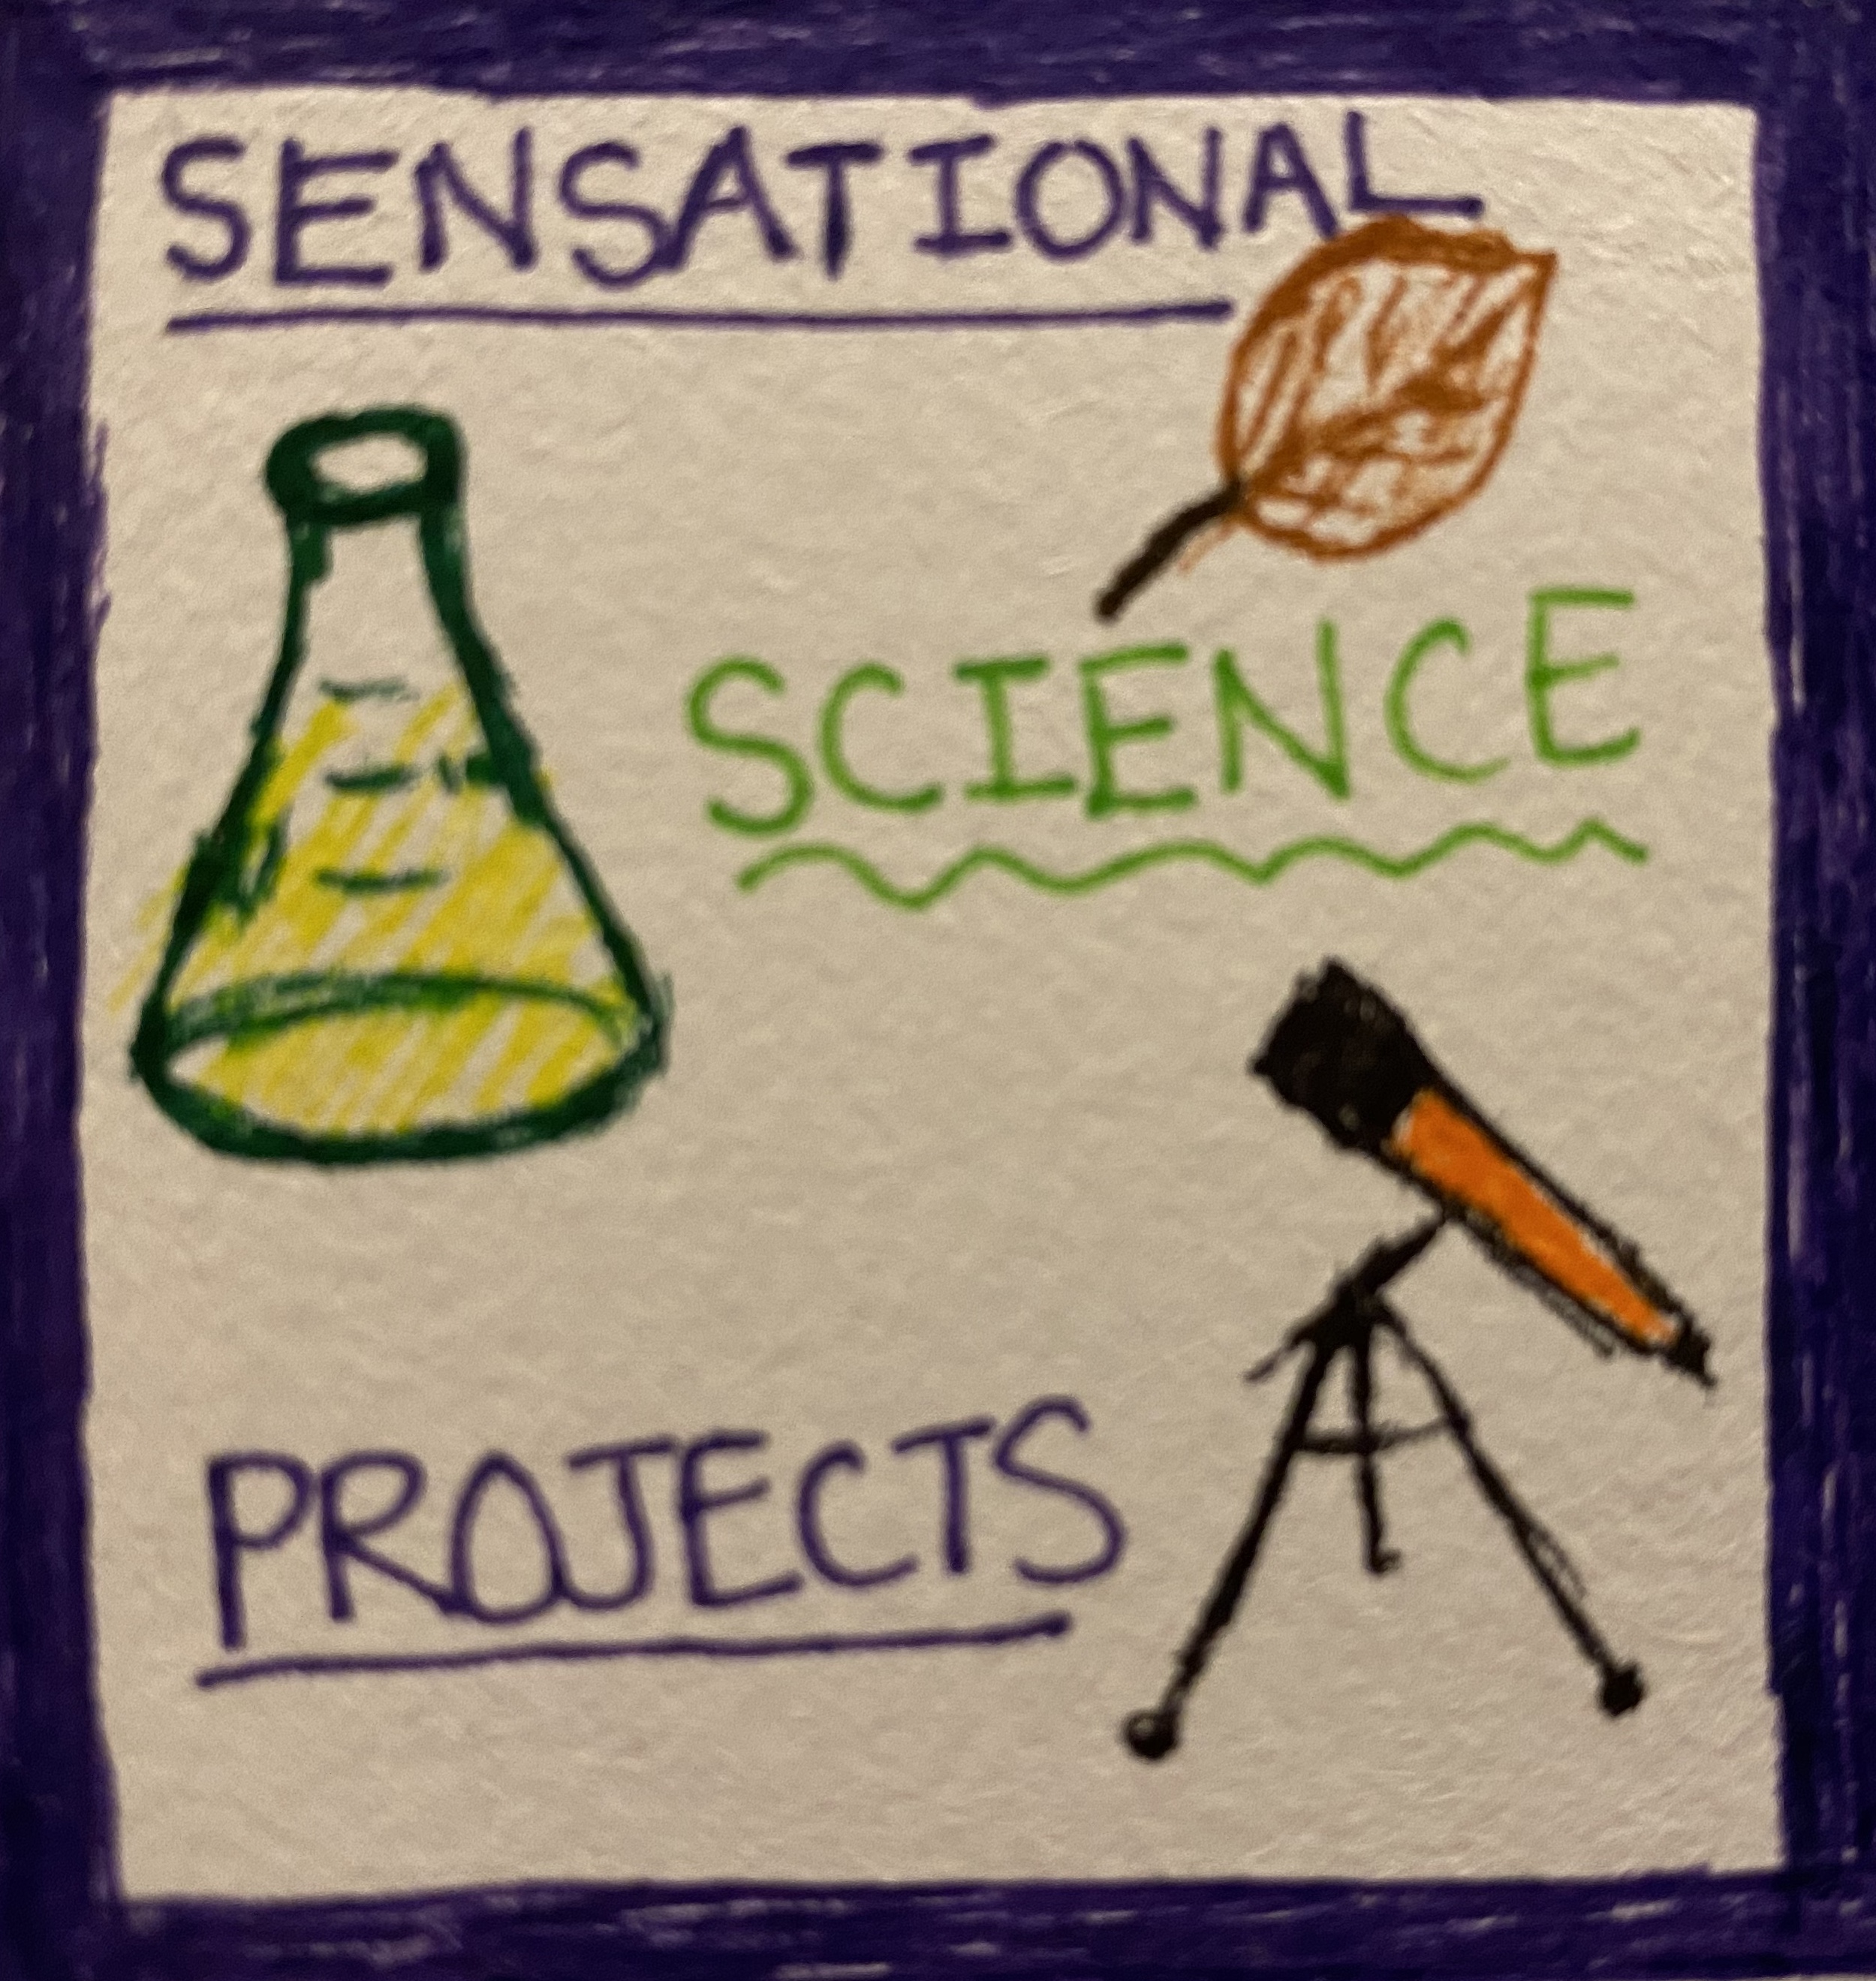 SENSATIONAL
SCIENCE
PROJECTS